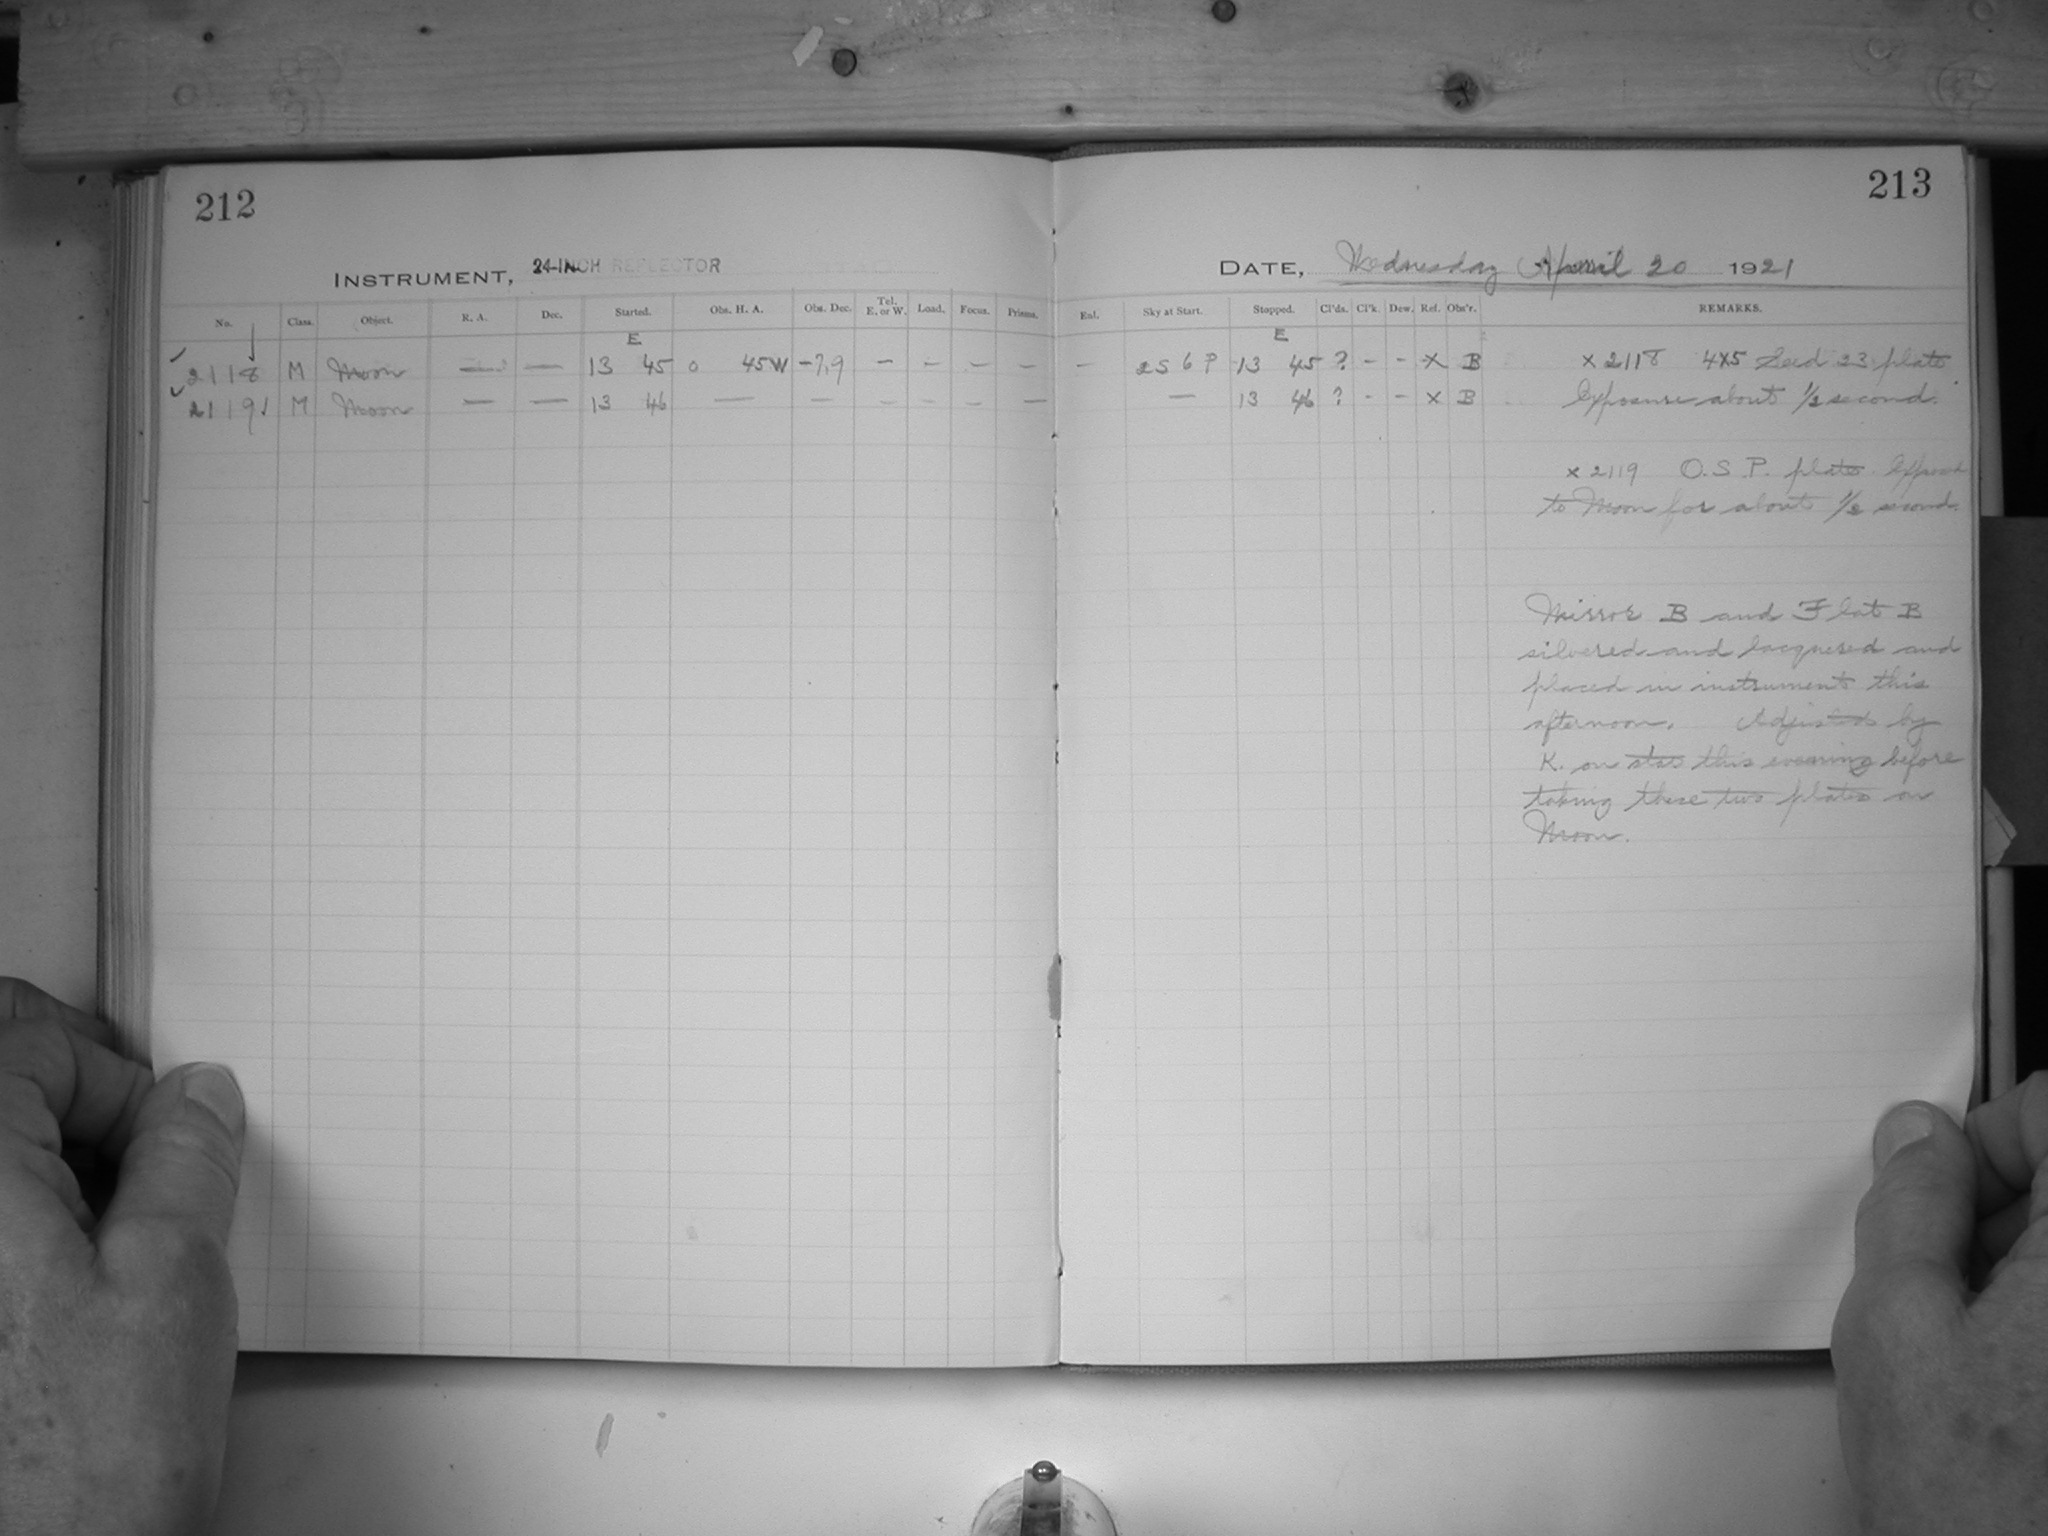 212
INSTRUMENT, 24-INCH REFLECTOR
No. Class. Object. R. A. Dec. Started. Obs. H. A. Obs. Dec. Tel. E. or W. Load. Focus. Prisms.
E
2118 M Moon — — 13 45 0 45W -7,9 - - - -
2119 M Moon — — 13 46 — — - - - —
213
DATE, Wednesday April 20 1921
Enl. Sky at Start. Stopped. Cl'ds. Cl'k. Dew. Ref. Obs'r. REMARKS.
E
- 2S 6 P 13 45 ? - - X B x 2118 4x5 Seed 23 plate
— 13 46 ? - - X B Exposure about 1/2 second.
x 2119 O.S.P. plate Exposed
to Moon for about 1/2 second.
Mirror B and Flat B
silvered and lacquered and
placed in instrument this
afternoon. Adjusted by
K. on star this evening before
taking these two plates on
Moon.